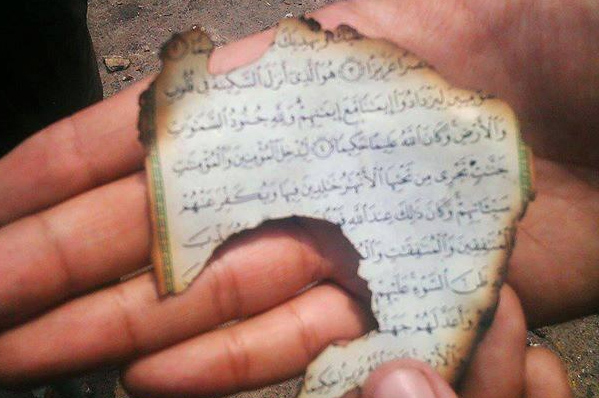 وَيَهْدِيَكَ
عَزِيزًا ٣ هُوَ الَّذِي أَنزَلَ السَّكِينَةَ فِي قُلُوبِ
لِيَزْدَادُوا إِيمَٰنًا مَّعَ إِيمَٰنِهِمْ وَلِلَّهِ جُنُودُ السَّمَٰوَٰتِ
وَالْأَرْضِ وَكَانَ اللَّهُ عَلِيمًا حَكِيمًا ٤ لِّيُدْخِلَ الْمُؤْمِنِينَ وَالْمُؤْمِنَٰتِ
جَنَّٰتٍ تَجْرِي مِن تَحْتِهَا الْأَنْهَٰرُ خَٰلِدِينَ فِيهَا وَيُكَفِّرَ عَنْهُمْ
سَيِّـَٔاتِهِمْ وَكَانَ ذَٰلِكَ عِندَ اللَّهِ
الْمُنَٰفِقِينَ وَالْمُنَٰفِقَٰتِ
ظَنَّ السَّوْءِ عَلَيْهِمْ
وَأَعَدَّ لَهُمْ
عَزِيزًا حَكِيمًا